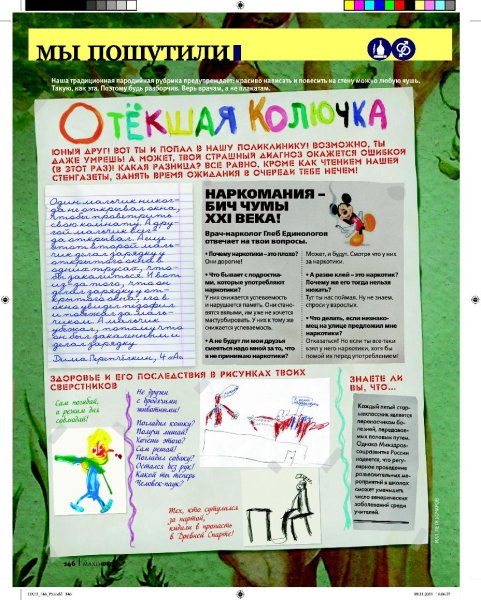 МЫ ПОШУТИЛИ
Наша традиционная пародийная рубрика предупреждает: красиво написать и повесить на стену можно любую чушь.
Такую, как эта. Поэтому будь разборчив. Верь врачам, а не плакатам.
ОТЁКШАЯ КОЛЮЧКА
ЮНЫЙ ДРУГ! ВОТ ТЫ И ПОПАЛ В НАШУ ПОЛИКЛИНИКУ! ВОЗМОЖНО, ТЫ
ДАЖЕ УМРЕШЬ! А МОЖЕТ, ТВОЙ СТРАШНЫЙ ДИАГНОЗ ОКАЖЕТСЯ ОШИБКОЙ
(В ЭТОТ РАЗ)! КАКАЯ РАЗНИЦА? ВСЕ РАВНО, КРОМЕ КАК ЧТЕНИЕМ НАШЕЙ
СТЕНГАЗЕТЫ, ЗАНЯТЬ ВРЕМЯ ОЖИДАНИЯ В ОЧЕРЕДИ ТЕБЕ НЕЧЕМ!
Один мальчик никог-
да не открывал окна,
чтобы проветрить
свою комнату. А дру-
гой мальчик всег-
да открывал. А еще
этот второй маль-
чик делал зарядку у
открытого окна в
одних трусах, что-
бы закалиться. И вот
из-за того, что он
делал зарядку у от-
крытого окна, его в
окно увидел педофил
и побежал за маль-
чиком. А мальчик
убежал, потому что
он был закаленным и
делал зарядку.
Дима Перепёлкин, 4 «А»
НАРКОМАНИЯ –
БИЧ ЧУМЫ
XXI ВЕКА!
Врач-нарколог Глеб Единологов
отвечает на твои вопросы.
• Почему наркотики – это плохо?
Они дорогие!
• Что бывает с подростка-
ми, которые употребляют
наркотики?
У них снижается успеваемость
и нарушается память. Они стано-
вятся вялыми, им уже не хочется
мастурбировать. У них к тому же
снижается успеваемость.
• А не будут ли мои друзья
смеяться надо мной за то, что
я не принимаю наркотики?
Может, и будут. Смотря что у них
за наркотики.
• А разве клей – это наркотик?
Почему же его тогда нельзя
нюхать?
Тут ты нас поймал. Ну не знаем,
спроси у взрослых.
• Что делать, если незнако-
мец на улице предложил мне
наркотики?
Отказаться! Но если ты все-таки
взял у него наркотики, хотя бы
помой их перед употреблением!
ЗДОРОВЬЕ И ЕГО ПОСЛЕДСТВИЯ В РИСУНКАХ ТВОИХ
СВЕРСТНИКОВ
Сам погибай,
а режим дня
соблюдай!
Не дружи
с бродячими
животными!
Погладил кошку?
Получи лишай!
Хочешь этого?
Сам решай!
Погладил собаку?
Остался без рук!
Какой ты теперь
Человек-паук?
Тех, кто сутулился
за партой,
кидали в пропасть
в Древней Спарте!
ЗНАЕТЕ ЛИ
ВЫ, ЧТО…
Каждый пятый стар-
шеклассник является
переносчиком бо-
лезней, передавае-
мых половым путем.
Однако Минздрав-
соцразвития России
надеется, что регу-
лярное проведение
разъяснительных ме-
роприятий в школах
сможет уменьшить
число венерических
заболеваний среди
учителей.
146 | MAXIM